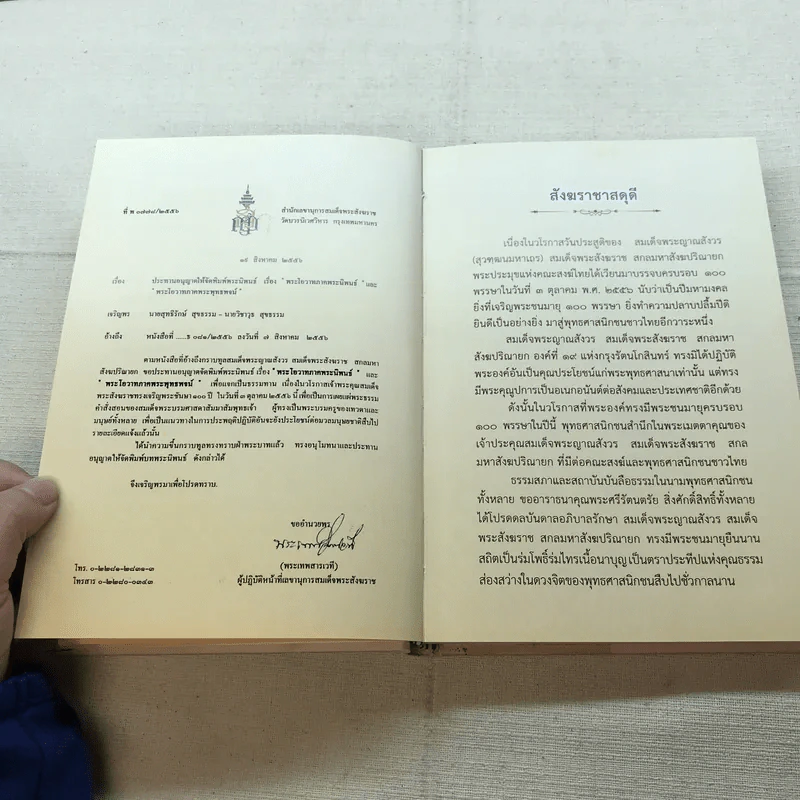 ที่ พ ๐๗๗๘/๒๕๕๖
สำนักเลขานุการสมเด็จพระสังฆราช
วัดบวรนิเวศวิหาร กรุงเทพมหานคร
๑๙ สิงหาคม ๒๕๕๖
เรื่อง ประทานอนุญาตให้จัดพิมพ์พระนิพนธ์ เรื่อง " พระโอวาทภาคพระนิพนธ์ " และ
" พระโอวาทภาคพระพุทธพจน์ "
เจริญพร นายสุทธิรักษ์ สุขธรรม – นายวิชาวุธ สุขธรรม
อ้างถึง หนังสือที่ .....ธ ๐๘๑/๒๕๕๖ ลงวันที่ ๗ สิงหาคม ๒๕๕๖
ตามหนังสือที่อ้างถึงกราบทูลสมเด็จพระญาณสังวร สมเด็จพระสังฆราช สกลมหา
สังฆปริณายก ขอประทานอนุญาตจัดพิมพ์พระนิพนธ์ เรื่อง " พระโอวาทภาคพระนิพนธ์ " และ
" พระโอวาทภาคพระพุทธพจน์ " เพื่อแจกเป็นธรรมทาน เนื่องในวโรกาสเจ้าพระคุณสมเด็จ
พระสังฆราชทรงเจริญพระชันษา ๑๐๐ ปี ในวันที่ ๓ ตุลาคม ๒๕๕๖ นี้ เพื่อเป็นการเผยแผ่พระธรรม
คำสั่งสอนของสมเด็จพระบรมศาสดาสัมมาสัมพุทธเจ้า ผู้ทรงเป็นพระบรมครูของเทวดาและ
มนุษย์ทั้งหลาย เพื่อเป็นแนวทางในการประพฤติปฏิบัติอันจะยังประโยชน์ต่อมวลมนุษยชาติสืบไป
รายละเอียดแจ้งแล้วนั้น
ได้นำความขึ้นกราบทูลทรงทราบฝ่าพระบาทแล้ว ทรงอนุโมทนาและประทาน
อนุญาตให้จัดพิมพ์บทพระนิพนธ์ ดังกล่าวได้
จึงเจริญพรมาเพื่อโปรดทราบ.
ขออำนวยพร
(พระเทพสารเวที)
ผู้ปฏิบัติหน้าที่เลขานุการสมเด็จพระสังฆราช
โทร. ๐-๒๒๘๑-๒๘๓๑-๓
โทรสาร ๐-๒๒๘๐-๐๓๔๓
สังฆราชาสดุดี
เนื่องในวโรกาสวันประสูติของ สมเด็จพระญาณสังวร
(สุวฑฺฒนมหาเถร) สมเด็จพระสังฆราช สกลมหาสังฆปริณายก
พระประมุขแห่งคณะสงฆ์ไทยได้เวียนมาบรรจบครบรอบ ๑๐๐
พรรษาในวันที่ ๓ ตุลาคม พ.ศ. ๒๕๕๖ นับว่าเป็นปีมหามงคล
ยิ่งที่เจริญพระชนมายุ ๑๐๐ พรรษา ยิ่งทำความปลาบปลื้มปีติ
ยินดีเป็นอย่างยิ่ง มาสู่พุทธศาสนิกชนชาวไทยอีกวาระหนึ่ง
สมเด็จพระญาณสังวร สมเด็จพระสังฆราช สกลมหา
สังฆปริณายก องค์ที่ ๑๙ แห่งกรุงรัตนโกสินทร์ ทรงมิได้ปฏิบัติ
พระองค์อันเป็นคุณประโยชน์แก่พระพุทธศาสนาเท่านั้น แต่ทรง
มีพระคุณูปการเป็นอเนกอนันต์ต่อสังคมและประเทศชาติอีกด้วย
ดังนั้นในวโรกาสที่พระองค์ทรงมีพระชนมายุครบรอบ
๑๐๐ พรรษาในปีนี้ พุทธศาสนิกชนสำนึกในพระเมตตาคุณของ
เจ้าประคุณสมเด็จพระญาณสังวร สมเด็จพระสังฆราช สกล
มหาสังฆปริณายก ที่มีต่อคณะสงฆ์และพุทธศาสนิกชนชาวไทย
ธรรมสภาและสถาบันบันลือธรรมในนามพุทธศาสนิกชน
ทั้งหลาย ขออาราธนาคุณพระศรีรัตนตรัย สิ่งศักดิ์สิทธิ์ทั้งหลาย
ได้โปรดดลบันดาลอภิบาลรักษา สมเด็จพระญาณสังวร สมเด็จ
พระสังฆราช สกลมหาสังฆปริณายก ทรงมีพระชนมายุยืนนาน
สถิตเป็นร่มโพธิ์ร่มไทรเนื้อนาบุญเป็นตราประทีปแห่งคุณธรรม
ส่องสว่างในดวงจิตของพุทธศาสนิกชนสืบไปชั่วกาลนาน